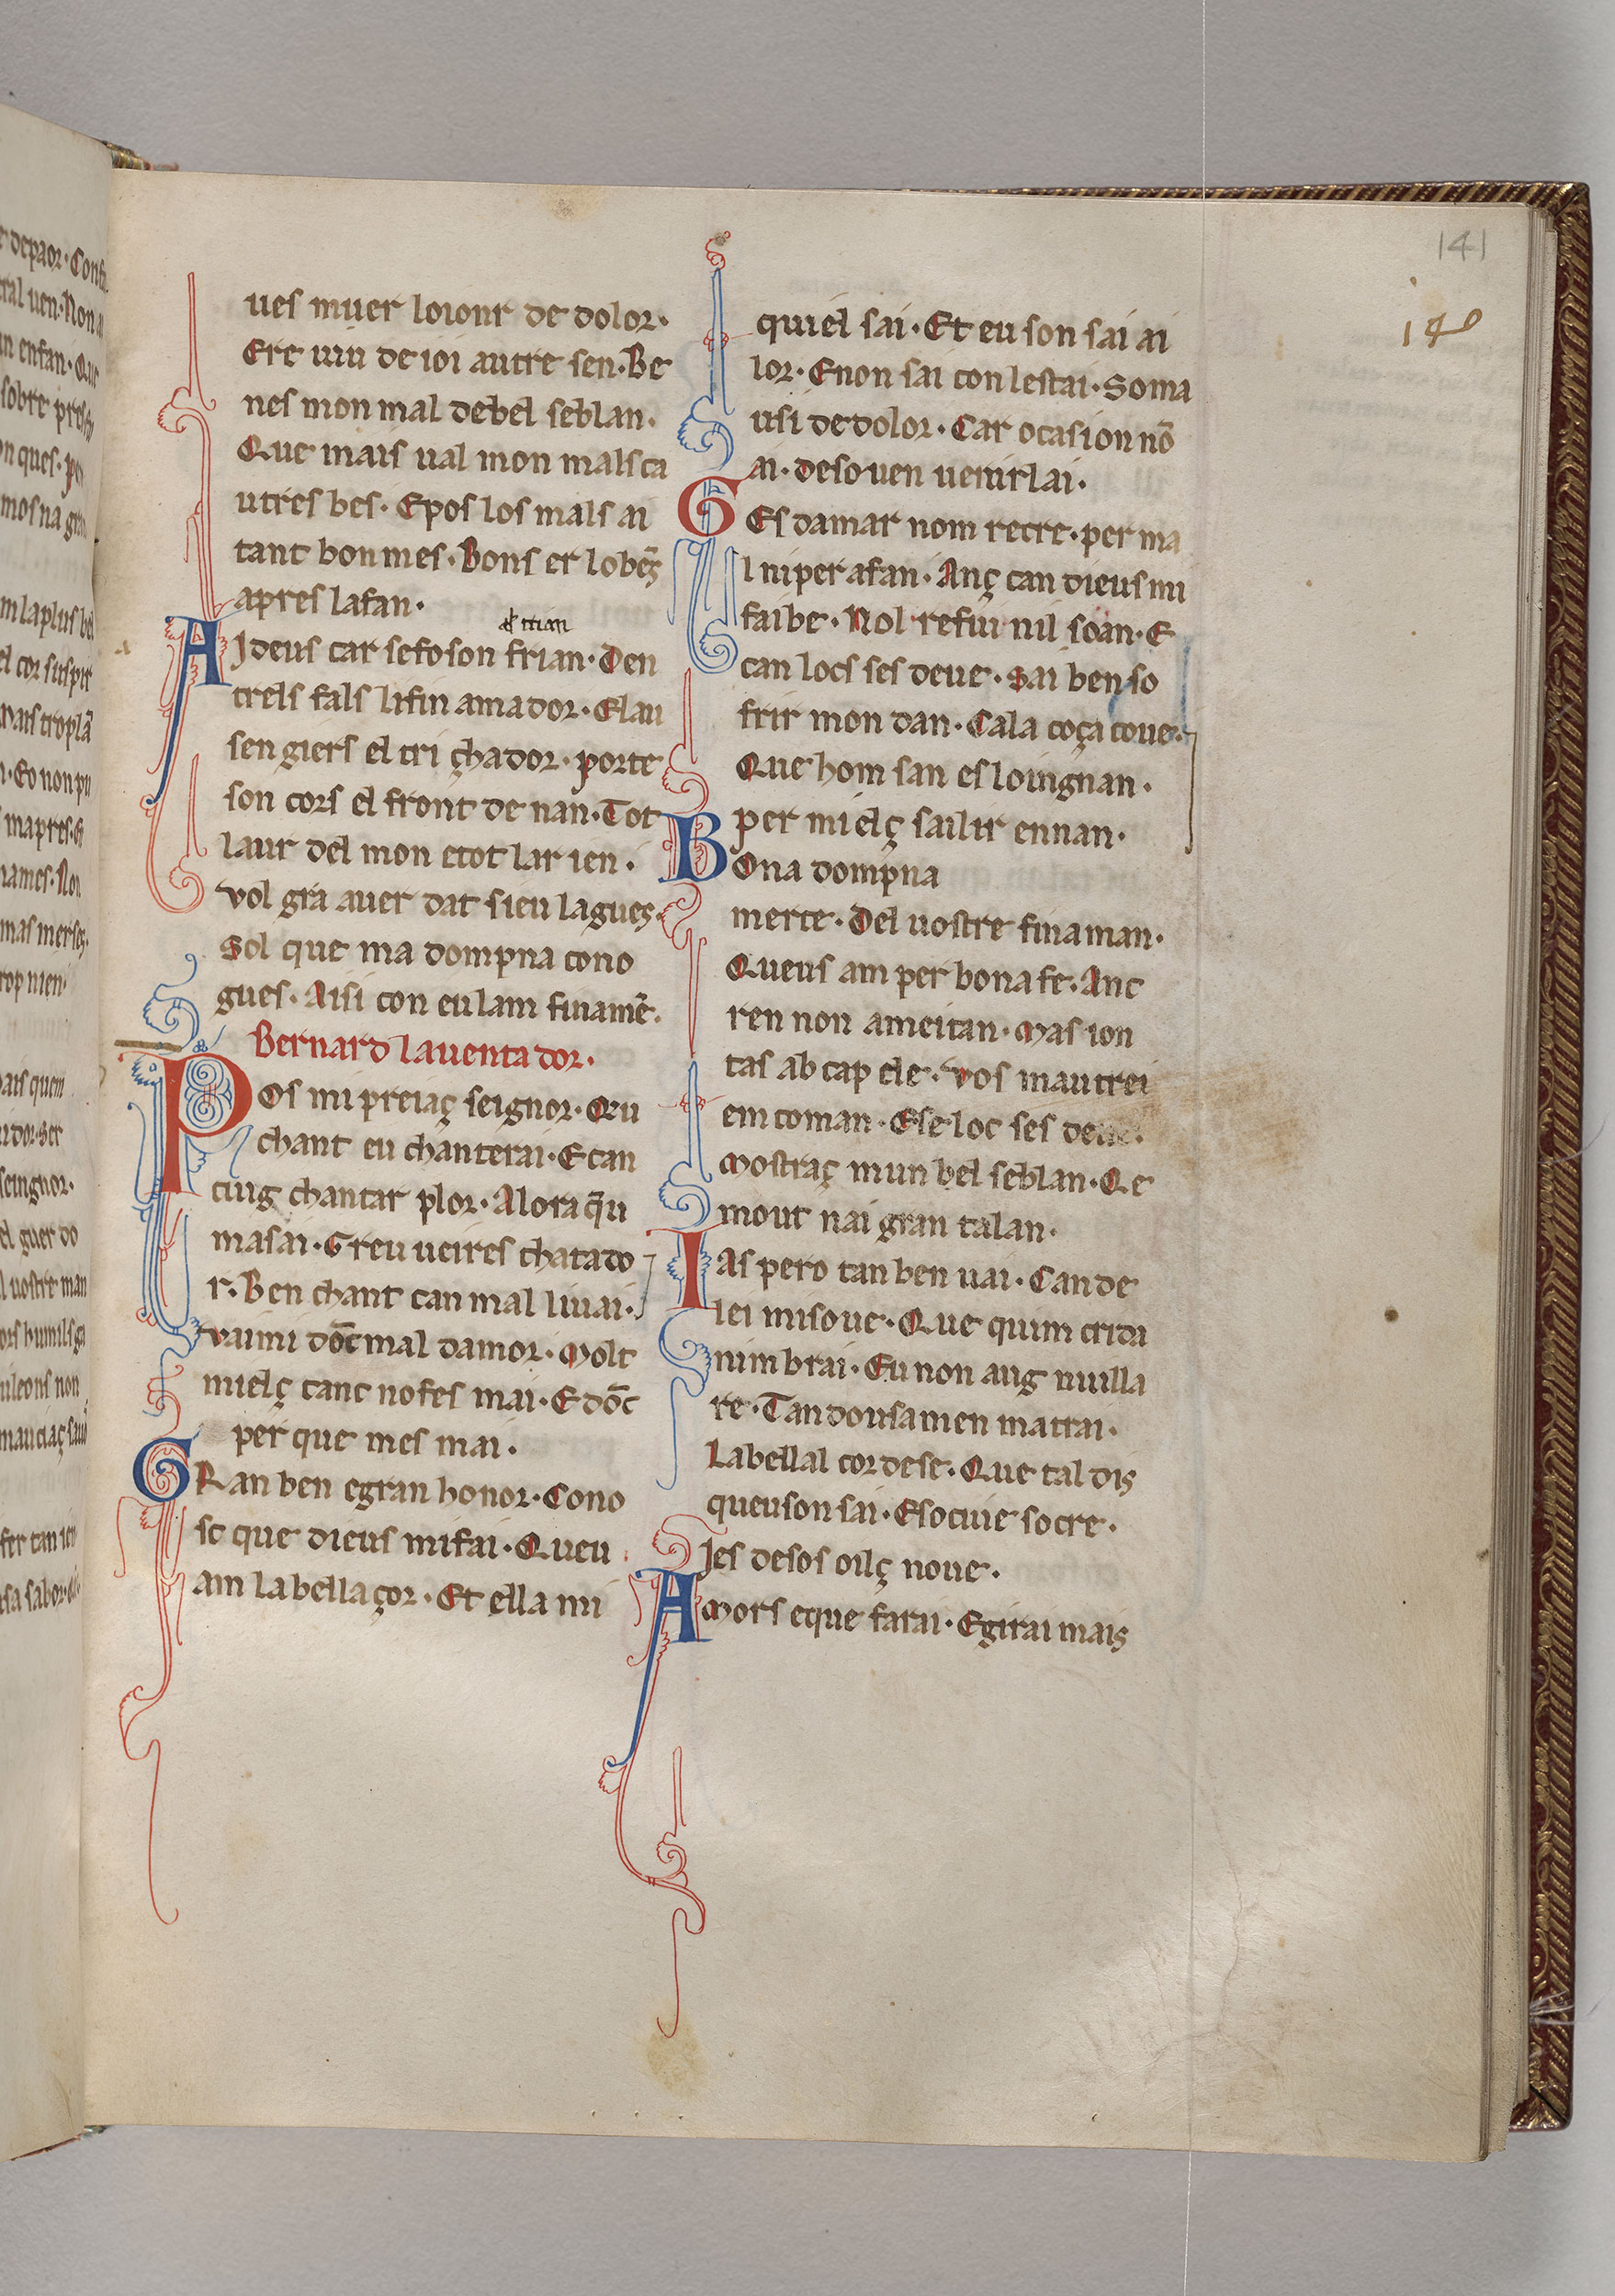 141
140
ues muer loiour de dolor·
Ere uiu de ioi autre sen·Be
nes mon mal debel seblan·
Que mais ual mon malsca
utres bes· Epos los mals ai
tant bonmes·Bons er lobēs
apres lafan·
trian
Ai deus car sefoson frian·Den
trels fals lifin amador·Elau
sengiers el tri çhador·porte
son cors el front de nan·Tot
laur del mon etot lar ien·
vol gra auer dat sieu lagues·
Sol que ma dompna cono
gues·Aisi con eulam finamē·
Bernard lauentador·
Pos mi preiaç seignor·Qeu
chant eu chanterai·Ecan
cuig chantar plor·Alora q̄u
masai·Greu ueires chatado
r·Ben chant can mal liuai·
vaimi dōc mal damor·Molt
mielç canc nofes mai·Edōc
per que mes mai·
GRan ben egran honor·Cono
sc que dieus mifai·Queu
am labellaçor·Et ella mi
quiel sai·Et eu son sai ai
lor·Enon sai con lestai·Soma
usi dedolor·Car ocasion nō
ai·desouen uenirlai·
GEs damar nom recre·per ma
l niper afan·Anç can dieus mi
faibe·Nol refui nil soan·E
can locs ses deue·Sai ben so
frir mon dan·Cala coça coue·
Que hom san esloingnan·
per mielç sailir ennan·
BOna dompna
merce·Del uostre finaman·
Queus am per bona fe·Anc
ren non ameitan·Mas ion
tas ab cap cle·vos mautrei
em coman·Ese loc ses deue·
Mostraç mun bel seblan·Qe
mout nai gran talan·
IAs pero tan ben uai·Can de
lei misoue·Que quim crida
nim brai·Eu non aug nuilla
re·Tan dousamen matrai·
Labellal cor dese·Que tal dis
queuson sai·Esocuie socre·
Jes desos oilç noue·
AMors eque farai·Egirai mais